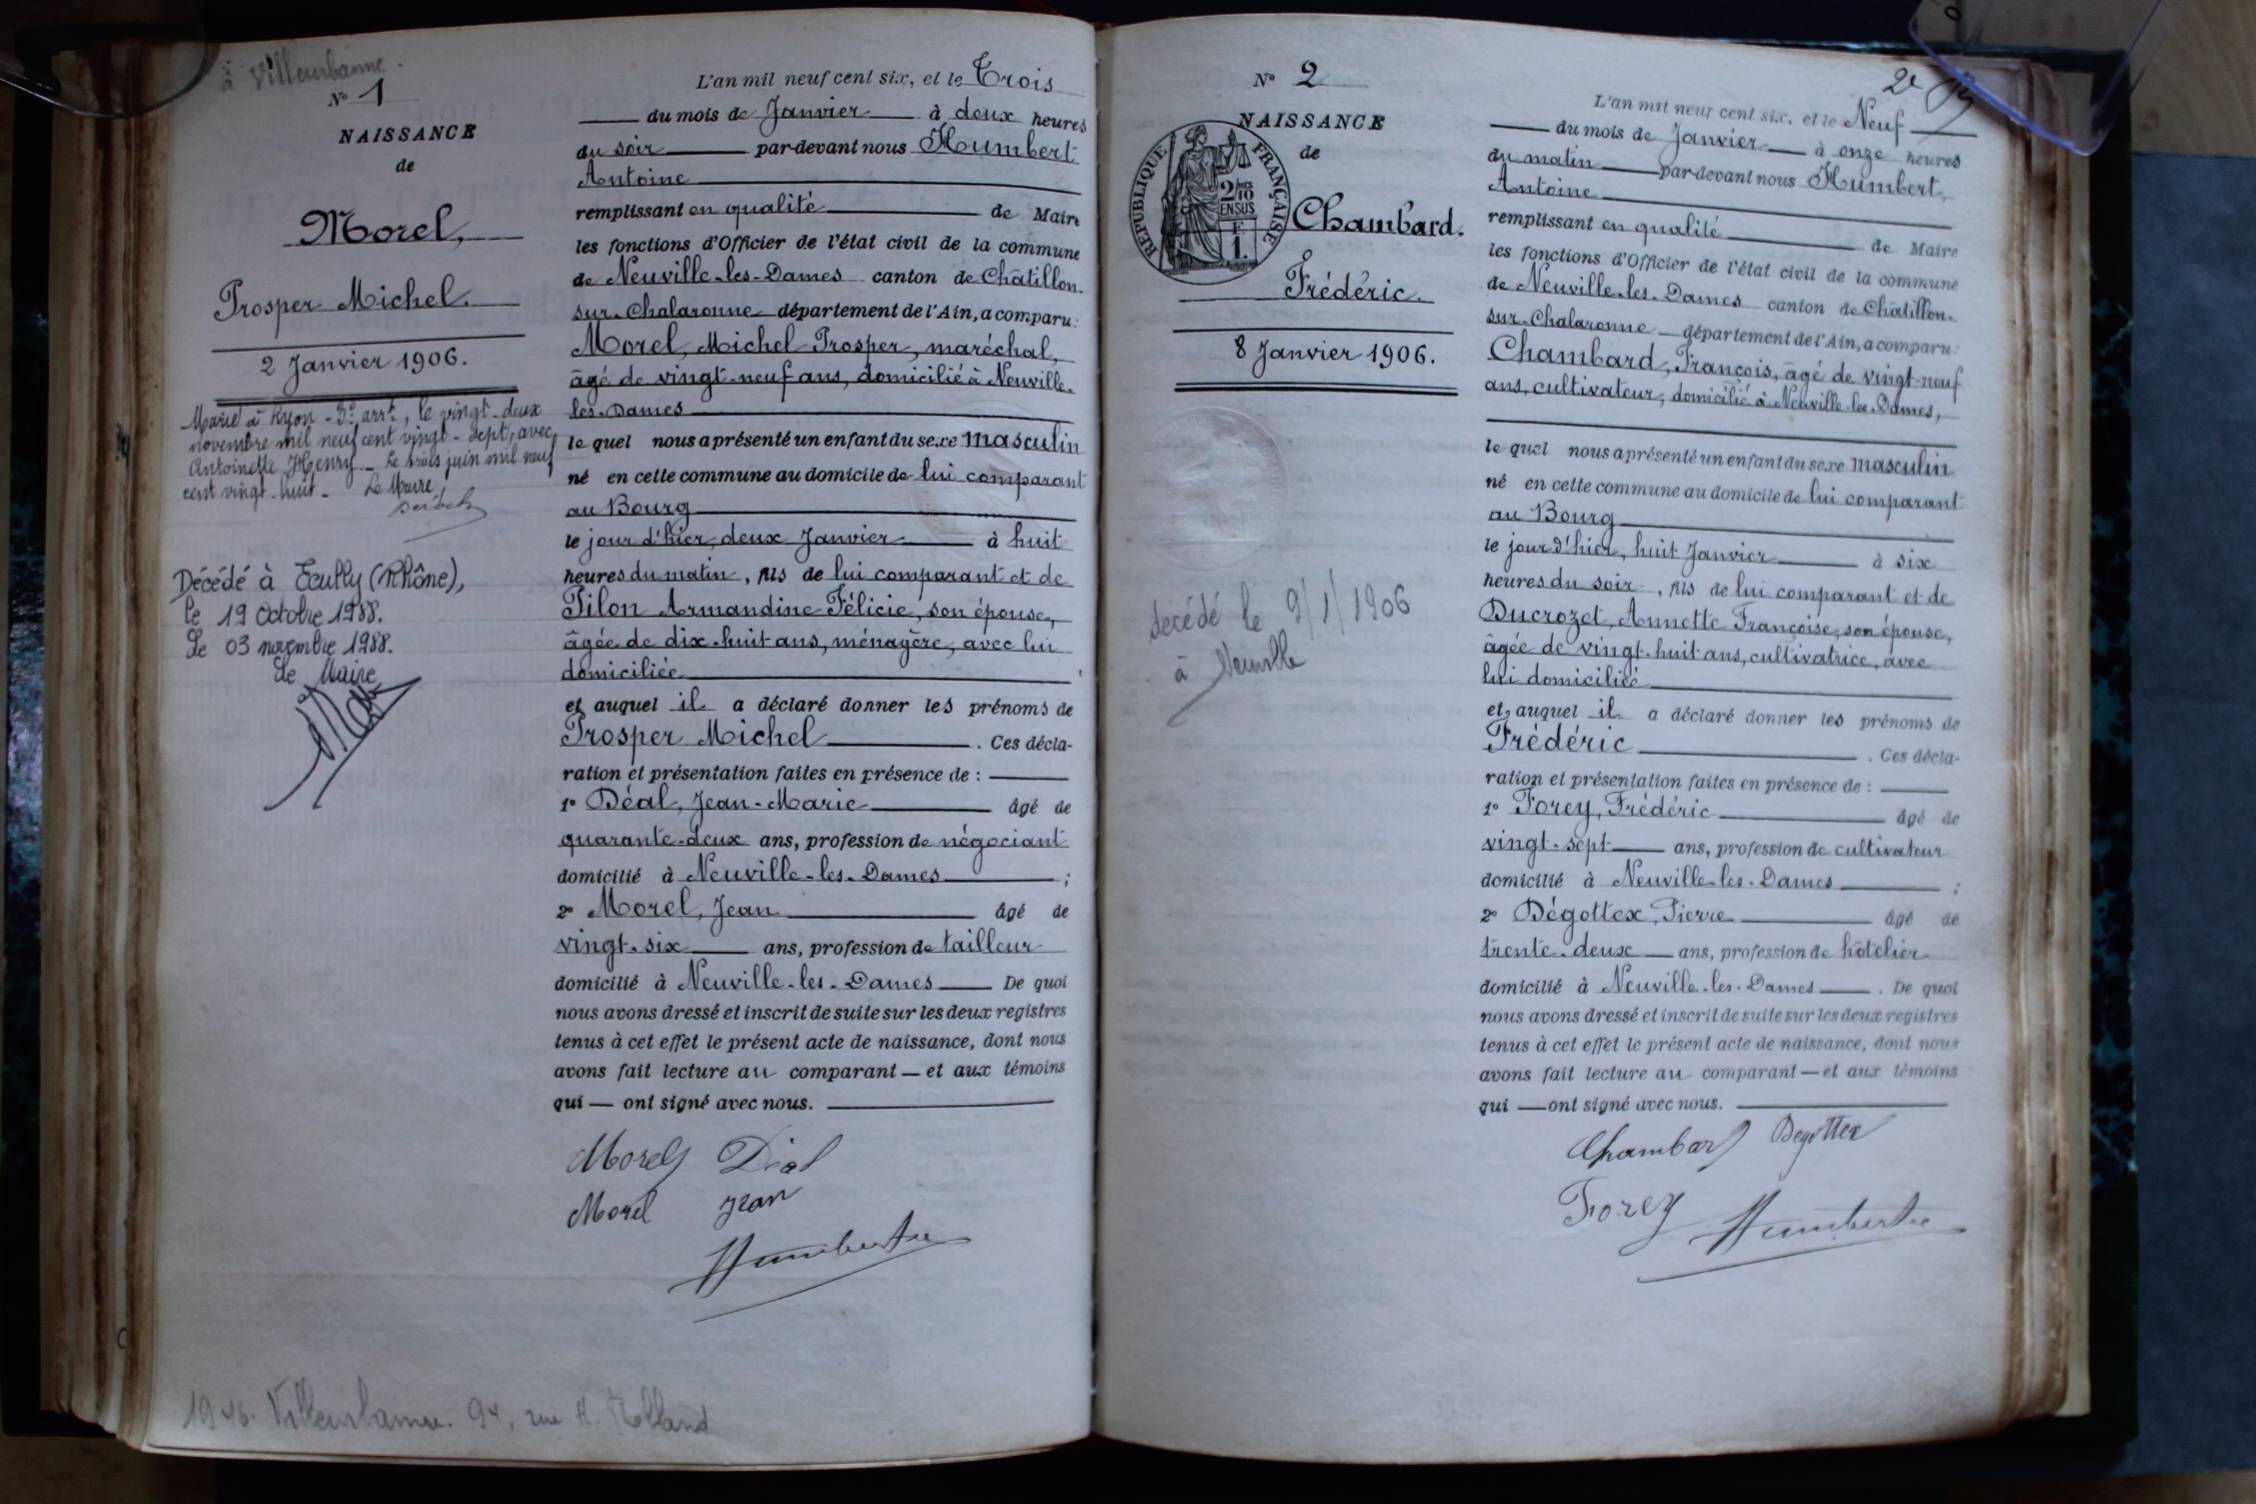 à Villeurbanne.
N° 1
NAISSANCE
de
Morel,
Prosper Michel.
2 Janvier 1906.
Marié à Lyon - 3e arrt, le vingt-deux
novembre mil neuf cent vingt-sept, avec
Antoinette Henry - Le trois juin mil neuf
cent vingt-huit - Le Maire
Décédé à Ecully (Rhône),
le 19 Octobre 1988.
Le 03 novembre 1988.
Le Maire
L'an mil neuf cent six, et le Trois
du mois de Janvier à deux heures
du soir par-devant nous Humbert
Antoine
remplissant en qualité de Maire
les fonctions d'Officier de l'état civil de la commune
de Neuville-les-Dames canton de Châtillon-
sur-Chalaronne département de l'Ain, a comparu:
Morel, Michel Prosper, maréchal,
âgé de vingt-neuf ans, domicilié à Neuville-
les-Dames
le quel nous a présenté un enfant du sexe masculin
né en cette commune au domicile de lui comparant
au Bourg
le jour d'hier, deux Janvier à huit
heures du matin, fils de lui comparant et de
Pilon Armandine Félicie, son épouse,
âgée de dix-huit ans, ménagère, avec lui
domiciliée
et auquel il a déclaré donner les prénoms de
Prosper Michel . Ces décla-
ration et présentation faites en présence de :
1° Déal, Jean-Marie âgé de
quarante-deux ans, profession de négociant
domicilié à Neuville-les-Dames ;
2° Morel, Jean âgé de
vingt-six ans, profession de tailleur
domicilié à Neuville-les-Dames De quoi
nous avons dressé et inscrit de suite sur les deux registres
tenus à cet effet le présent acte de naissance, dont nous
avons fait lecture au comparant — et aux témoins
qui — ont signé avec nous.
Morel Déal
Morel Jean
Humbert
1946. Villeurbanne. 94, rue Rolland
N° 2
NAISSANCE
de
RÉPUBLIQUE FRANÇAISE
2/10
EN SUS
F
1.
Chambard.
Frédéric.
8 Janvier 1906.
décédé le 9/1/1906
à Neuville
2e
L'an mil neuf cent six, et le Neuf
du mois de Janvier à onze heures
du matin par-devant nous Humbert,
Antoine
remplissant en qualité de Maire
les fonctions d'Officier de l'état civil de la commune
de Neuville-les-Dames canton de Châtillon-
sur-Chalaronne département de l'Ain, a comparu:
Chambard, François, âgé de vingt-neuf
ans, cultivateur, domicilié à Neuville-les-Dames,
le quel nous a présenté un enfant du sexe masculin
né en cette commune au domicile de lui comparant
au Bourg
le jour d'hier, huit Janvier à six
heures du soir, fils de lui comparant et de
Ducrozet, Annette Françoise, son épouse,
âgée de vingt-huit ans, cultivatrice, avec
lui domiciliée
et auquel il a déclaré donner les prénoms de
Frédéric . Ces décla-
ration et présentation faites en présence de :
1° Forey, Frédéric âgé de
vingt-sept ans, profession de cultivateur
domicilié à Neuville-les-Dames ;
2° Dégottex, Pierre âgé de
trente-deux ans, profession de hôtelier
domicilié à Neuville-les-Dames . De quoi
nous avons dressé et inscrit de suite sur les deux registres
tenus à cet effet le présent acte de naissance, dont nous
avons fait lecture au comparant — et aux témoins
qui — ont signé avec nous.
Chambard Degottex
Forey Humbert